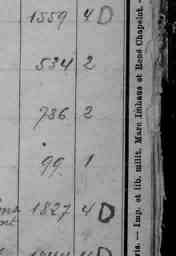 1559 4 D
534 2
736 2
99 1
1827 4 D
ris. — Imp. et lib. milit. Marc Imhaus et René Chapelot.